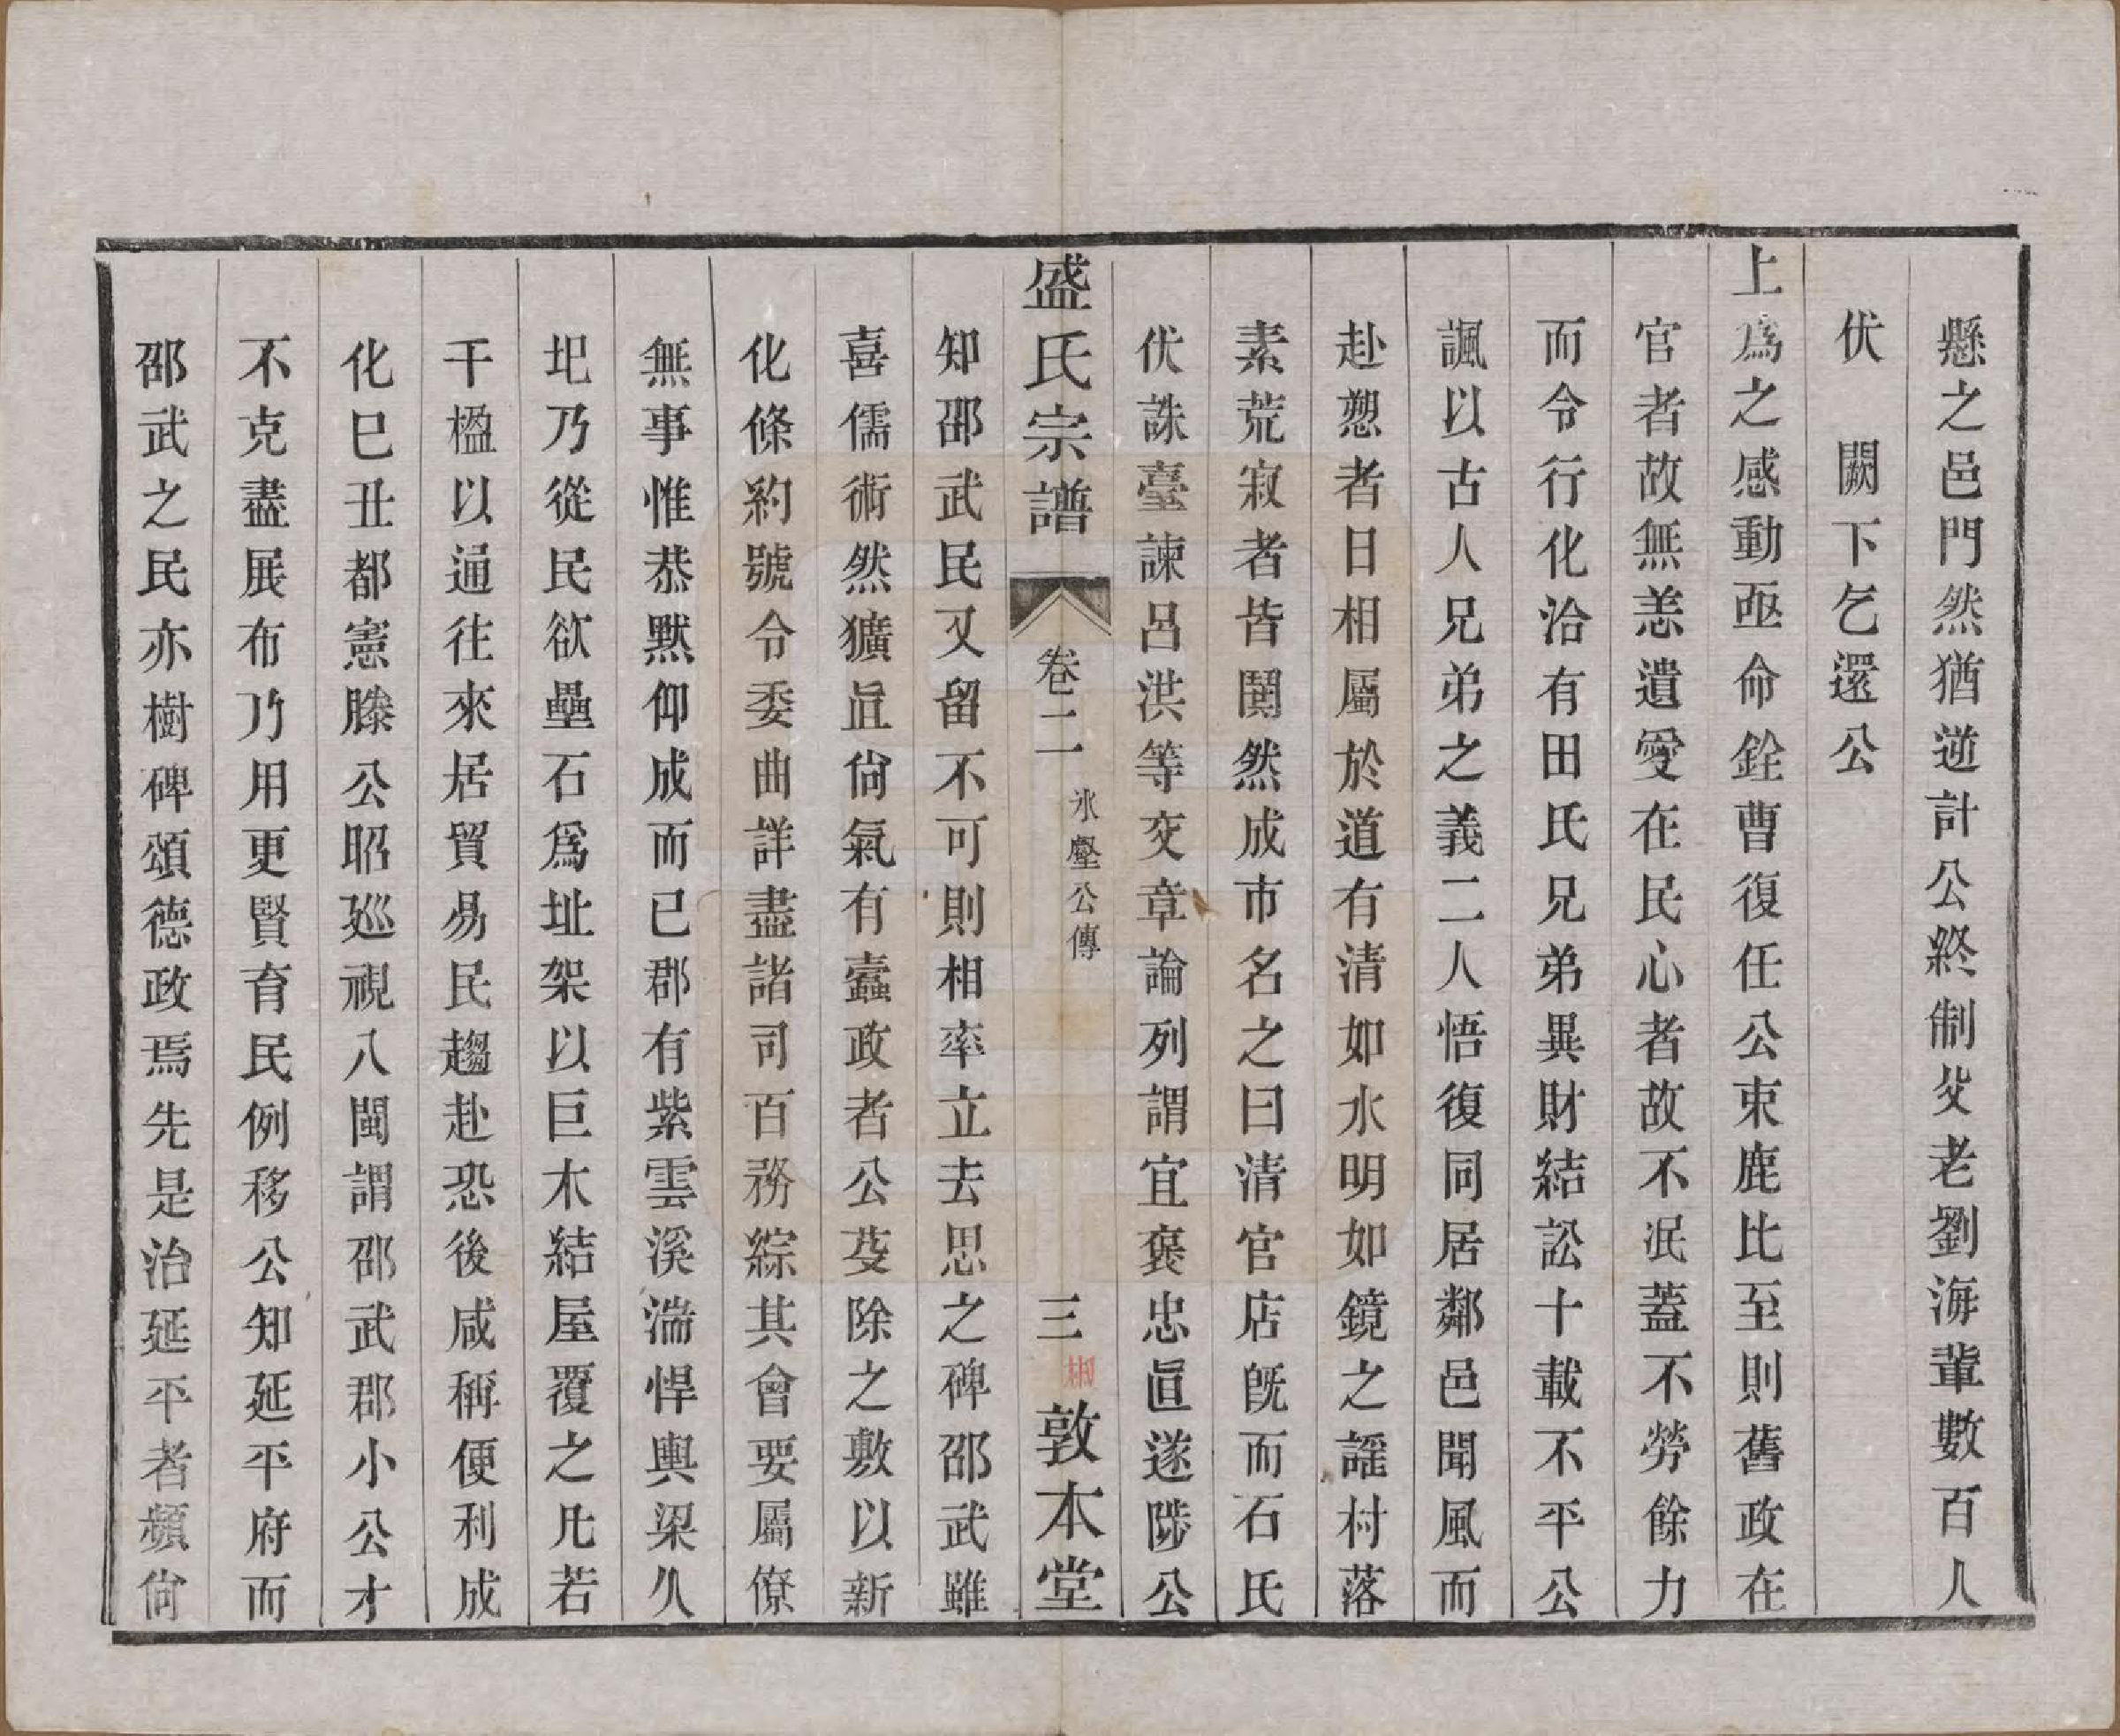 懸之邑門然猶逆計公終制父老劉海輩數百人
伏　闕下乞還公
上為之感動亟命銓曹復任公束鹿比至則舊政在
官者故無恙遺愛在民心者故不泯蓋不勞餘力
而令行化洽有田氏兄弟異財結訟十載不平公
諷以古人兄弟之義二人悟復同居鄰邑聞風而
赴愬者日相屬於道有清如水明如鏡之謠村落
素荒寂者皆鬨然成市名之曰清官店旣而石氏
伏誅臺諫呂洪等交章論列謂宜褒忠眞遂陟公
盛氏宗譜　卷二　氷壑公傳　三　敦本堂
知邵武民又留不可則相率立去思之碑邵武雖
喜儒術然獷且尙氣有蠹政者公芟除之敷以新
化條約號令委曲詳盡諸司百務綜其會要屬僚
無事惟恭默仰成而已郡有紫雲溪湍悍輿梁久
圯乃從民欲壘石爲址架以巨木結屋覆之凡若
干楹以通往來居貿易民趨赴恐後咸稱便利成
化巳丑都憲滕公昭廵視八閩謂邵武郡小公才
不克盡展布乃用更賢育民例移公知延平府而
邵武之民亦樹碑頌德政焉先是治延平者頻尙